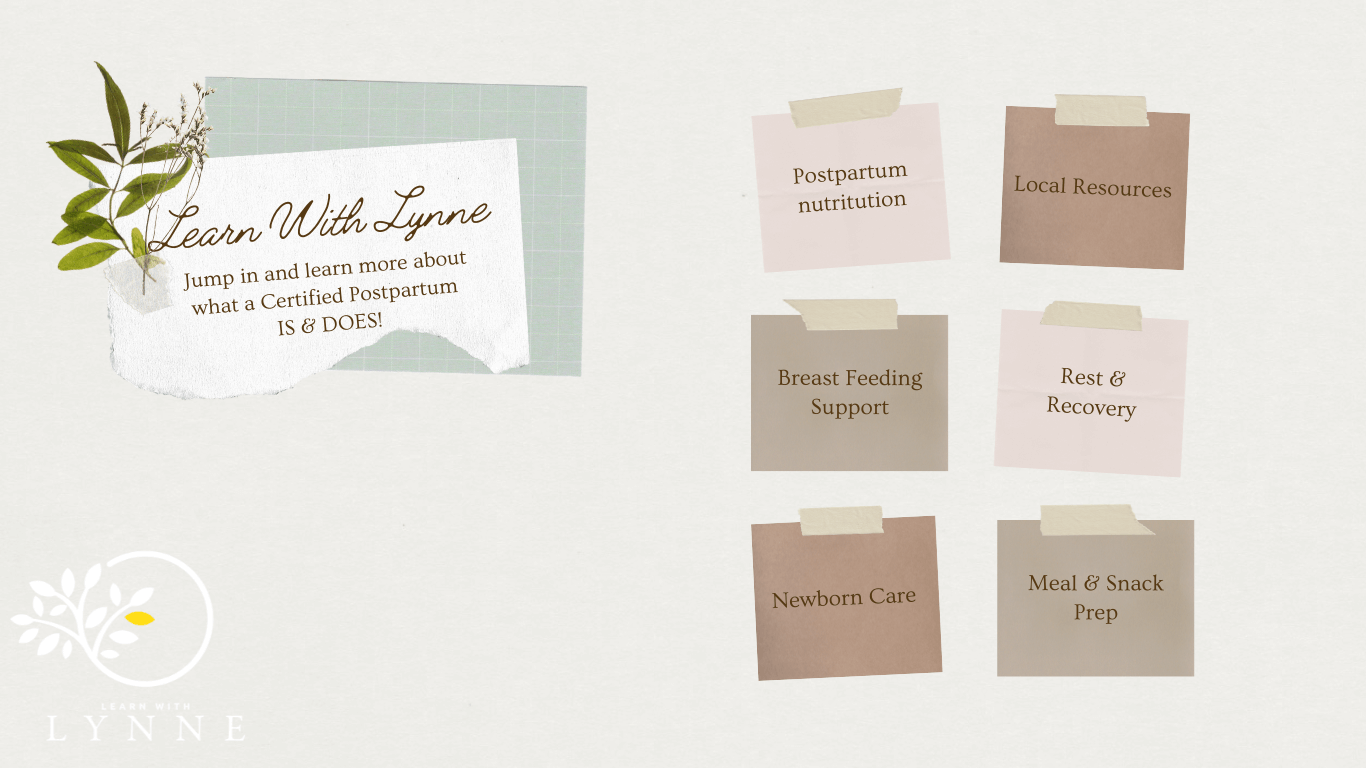 Learn With Lynne
Jump in and learn more about
what a Certified Postpartum
IS & DOES!
Postpartum
nutritution
Local Resources
Breast Feeding
Support
Rest &
Recovery
Newborn Care
Meal & Snack
Prep
LEARN WITH
LYNNE